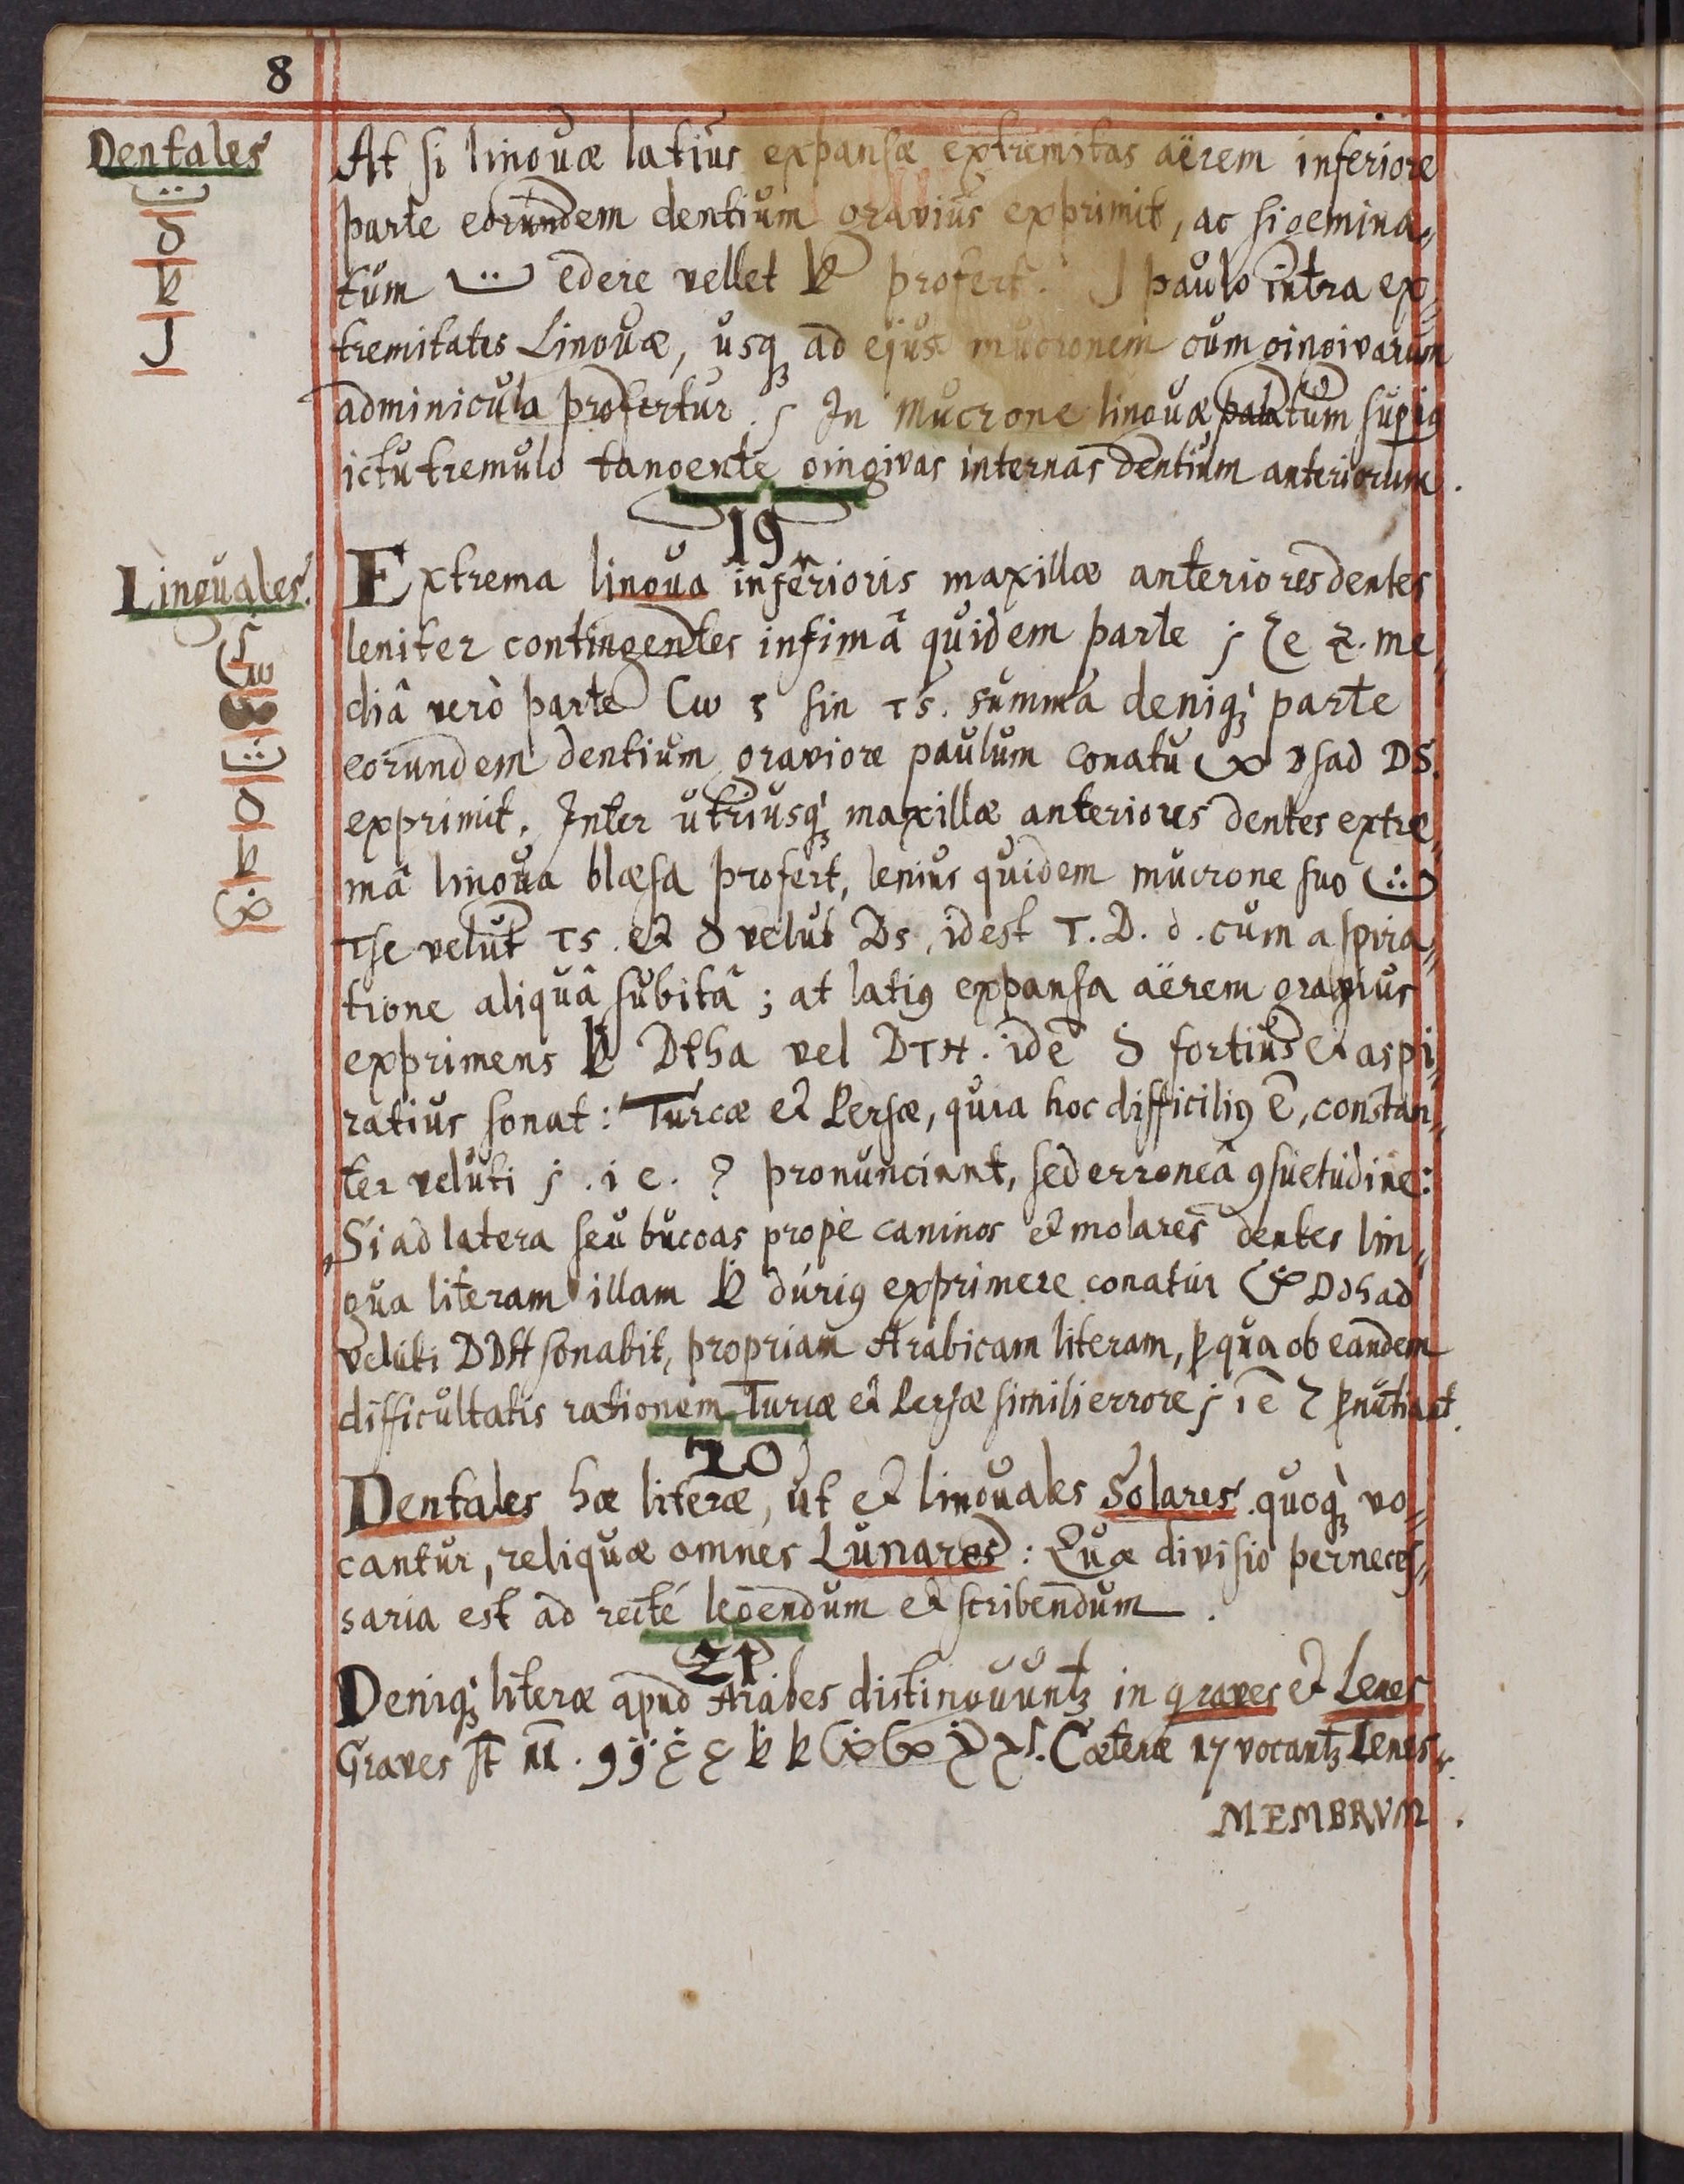 8
Dentales
ت
د
ط
ل
At si linguæ latiùs expansæ extremitas aërem inferiore
parte eorundem dentium gravius exprimit, ac si gemina„
tum ت edere vellet ط profert. ل paulo intra ex„
tremitates Linguæ, usq₃ ad ejus mucronem cum gingivarum
adminicula profertur. ر In mucrone linguæ palatum supiꝯ
ictu tremulo tangente gingivas internas dentium anteriorum.
19
Linguales.
س
ص
ث
ذ
ظ
ض
Extrema lingua inferioris maxillæ anteriores dentes
leniter contingentes infimâ quidem parte ز Ze z. me„
diâ verò parte س s sin TS. summâ deniq₃ parte
eorundem dentium graviore paulum conatu ص Dsad DS.
exprimit. Inter utriusq₃ maxillæ anteriores dentes extre„
mâ lingua blæsa profert, lenius quidem mucrone suo ث
Tse velut TS. et ذ velut Ds, idest T. D. d. cum aspira„
tione aliquâ subitâ; at latiꝯ expansa aërem gravius
exprimens ظ Dtha vel DTH. idē ذ fortius et aspi„
ratius sonat: Turcæ et Persæ, quia hoc difficiliꝯ ē, constan„
ter veluti ز. i e. Z pronunciant, sed erroneâ ꝯsuetudine:
Si ad latera seu buccas prope caninos et molares dentes lin„
gua literam illam ظ duriꝯ exprimere conatur ض Ddhad
veluti DDH sonabit, propriam Arabicam literam, ꝓ qua ob eandem
difficultatis rationem Turcæ et Persæ simili errore ز i ē Z ꝓnūtiant.
20
Dentales hæ literæ, ut et linguales Solares quoq₃ vo„
cantur, reliquæ omnes Lunares: Quæ divisio perneces„
saria est ad rectè legendum et scribendum.
21
Deniq₃ literæ apud Arabes distinguunt₃ in graves et Lenes
Graves st̄ 11. و ق غ ع ظ ط ض ص خ ح ا. Cæteræ 17 vocant₃ Lenes.
MEMBRVM.